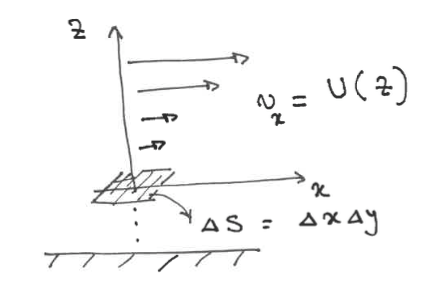 z
v_x = U(z)
x
ΔS = Δx Δy